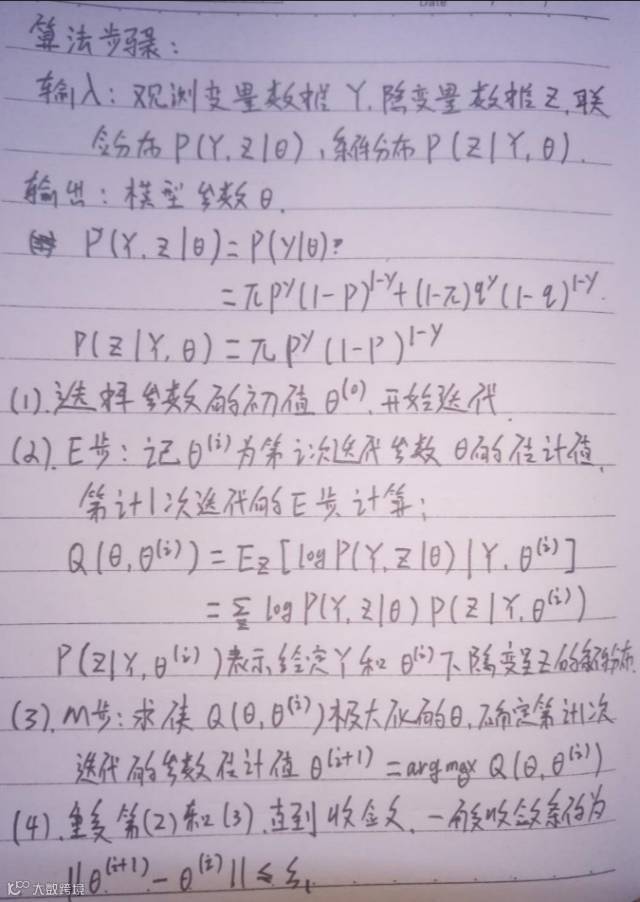 Date
算法步骤:
输入: 观测变量数据 Y, 隐变量数据 Z, 联
合分布 P(Y, Z|θ), 条件分布 P(Z|Y, θ).
输出: 模型参数 θ.
P(Y, Z|θ) = P(Y|θ)?
= πp^y(1-p)^{1-y} + (1-π)q^y(1-q)^{1-y}.
P(Z|Y, θ) = πp^y(1-p)^{1-y}
(1). 选择参数的初值 θ^{(0)}, 开始迭代
(2). E步: 记 θ^{(i)} 为第 i 次迭代参数 θ的估计值,
第 i+1 次迭代的E步计算;
Q(θ, θ^{(i)}) = E_Z[log P(Y, Z|θ)|Y, θ^{(i)}]
= Σ_Z log P(Y, Z|θ) P(Z|Y, θ^{(i)})
P(Z|Y, θ^{(i)})表示给定Y和 θ^{(i)}下隐变量Z的条件分布.
(3). M步: 求使 Q(θ, θ^{(i)})极大化的θ, 确定第i+1次
迭代的参数估计值 θ^{(i+1)} = argmax Q(θ, θ^{(i)})
(4). 重复第(2)和(3), 直到收敛, 一般收敛条件为
||θ^{(i+1)} - θ^{(i)}|| ≤ ε_1
大数跨境